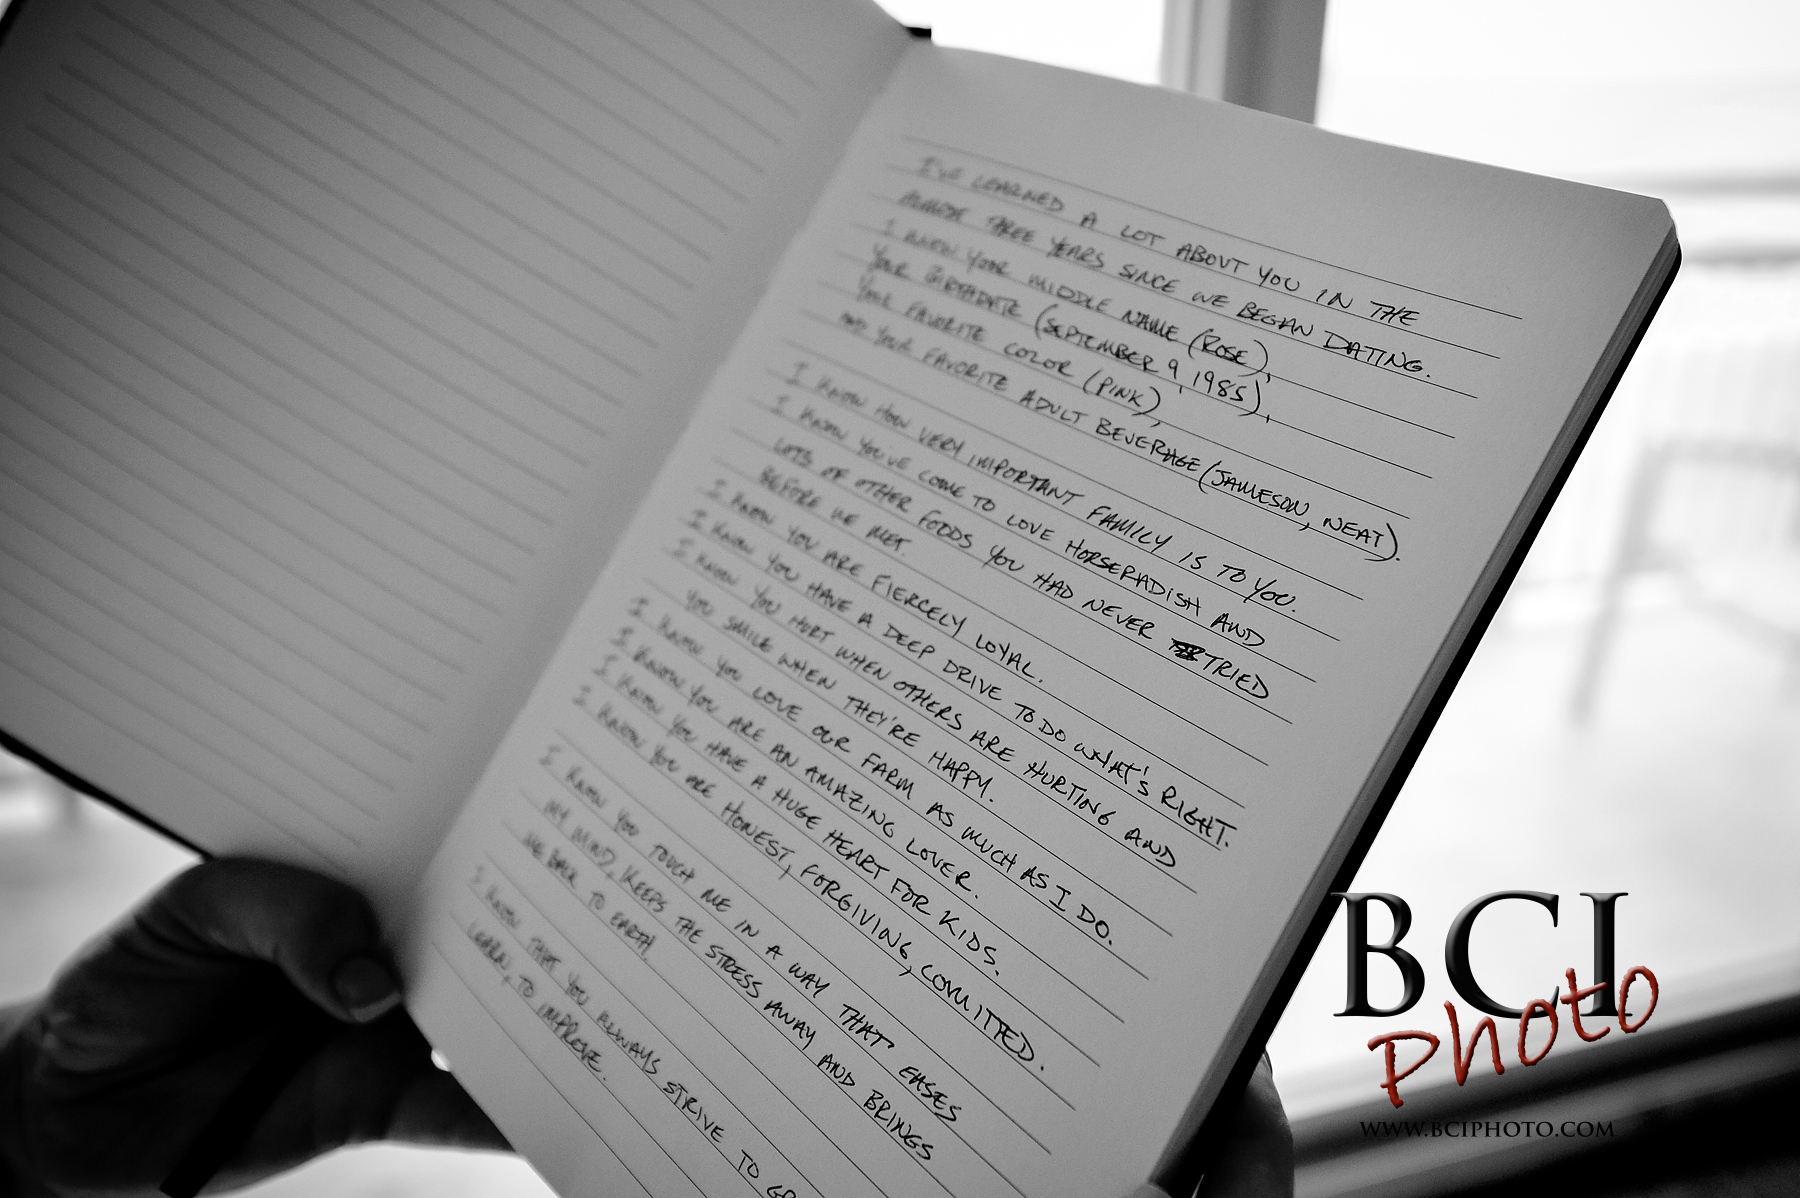 I'VE LEARNED A LOT ABOUT YOU IN THE
ALMOST THREE YEARS SINCE WE BEGAN DATING.
I KNOW YOUR MIDDLE NAME (ROSE),
YOUR BIRTHDATE (SEPTEMBER 9, 1985),
YOUR FAVORITE COLOR (PINK),
AND YOUR FAVORITE ADULT BEVERAGE (JAMESON, NEAT).
I KNOW HOW VERY IMPORTANT FAMILY IS TO YOU.
I KNOW YOU'VE COME TO LOVE HORSERADISH AND
LOTS OF OTHER FOODS YOU HAD NEVER TRIED
BEFORE WE MET.
I KNOW YOU ARE FIERCELY LOYAL.
I KNOW YOU HAVE A DEEP DRIVE TO DO WHAT'S RIGHT.
I KNOW YOU HURT WHEN OTHERS ARE HURTING AND
YOU SMILE WHEN THEY'RE HAPPY.
I KNOW YOU LOVE OUR FARM AS MUCH AS I DO.
I KNOW YOU ARE AN AMAZING LOVER.
I KNOW YOU HAVE A HUGE HEART FOR KIDS.
I KNOW YOU ARE HONEST, FORGIVING, COMMITTED.
I KNOW YOU TOUCH ME IN A WAY THAT EASES
MY MIND, KEEPS THE STRESS AWAY AND BRINGS
ME BACK TO EARTH.
I KNOW THAT YOU ALWAYS STRIVE TO
LEARN, TO IMPROVE.
BCI
Photo
WWW.BCIPHOTO.COM